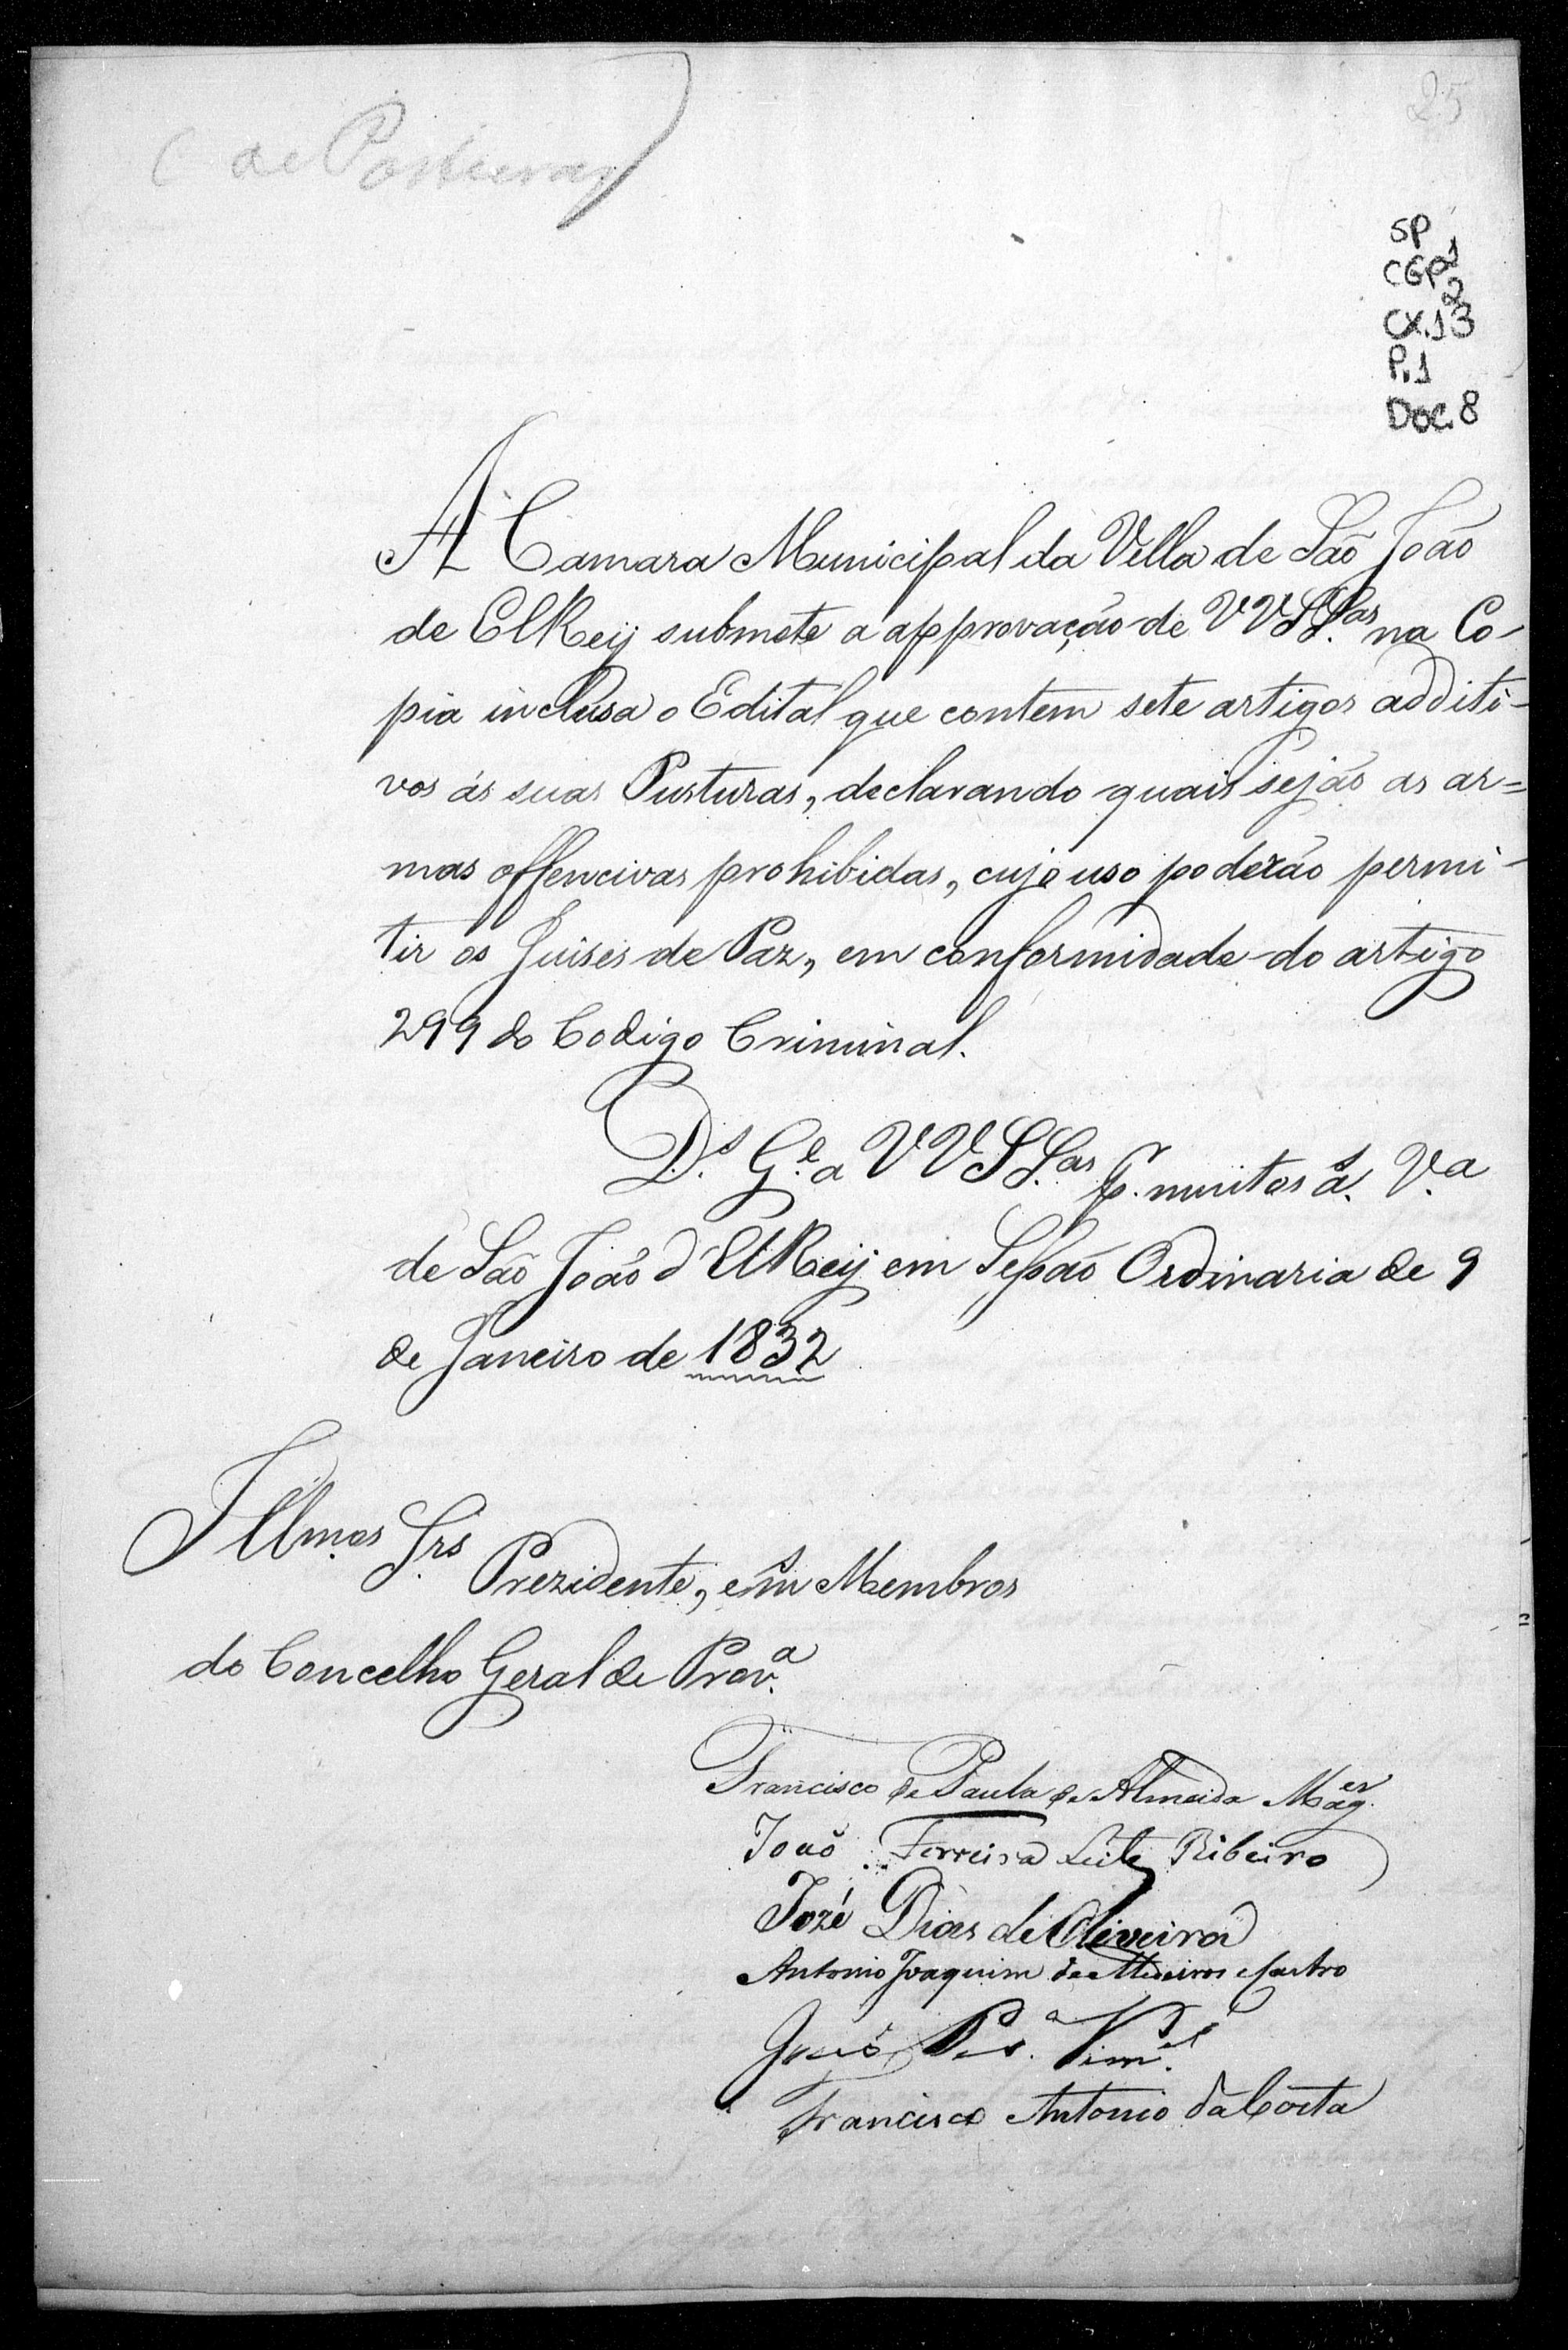 25
(de Posturas)
SP
CGP1
2
CX.13
P.1
DOC.8
A Camara Municipal da Villa de São João
de ElReij submete a approvação de VVSS.as na Co-
pia inclusa o Edital que contem sete artigos additi-
vos ás suas Pusturas, declarando quais sejão as ar=
mas offencivas prohibidas, cujo uso poderão permi-
tir os Juises de Paz, em conformidade do artigo
299 do Codigo Criminal.
D.s G.e a VVSS.as p. muitos a.s V.a
de São João d'ElReij em Sessão Ordinaria de 9
de Janeiro de 1832
Illmos Srs Prezidente, e Membros
do Concelho Geral de Prov.a
Francisco de Paula de Almeida Mag.es
João Ferreira Leite Ribeiro
Jozé Dias de Oliveira
Antonio Joaquim de Medeiros e Castro
Francisco Antonio da Costa